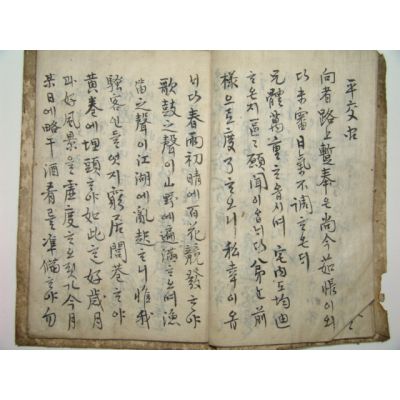 平交
向者路上暫奉은尚今茹悵이외
다未審日氣不調하온대
元體萬重하옵시며宅內도均迪
하온지區區願聞이옵니다弟난前
樣으로度了하오니私幸이옵
니다春雨初晴에百花競發하야
歌鼓之聲이山野에遍滿하오며漁
笛之聲이江湖에亂起하니惟我
騷客인들엇지窮居閭巷하야
黃卷에埋頭하야如此한好歲月
과好風景을虛度하오릿가今月
某日에略干酒肴를準備하야勿